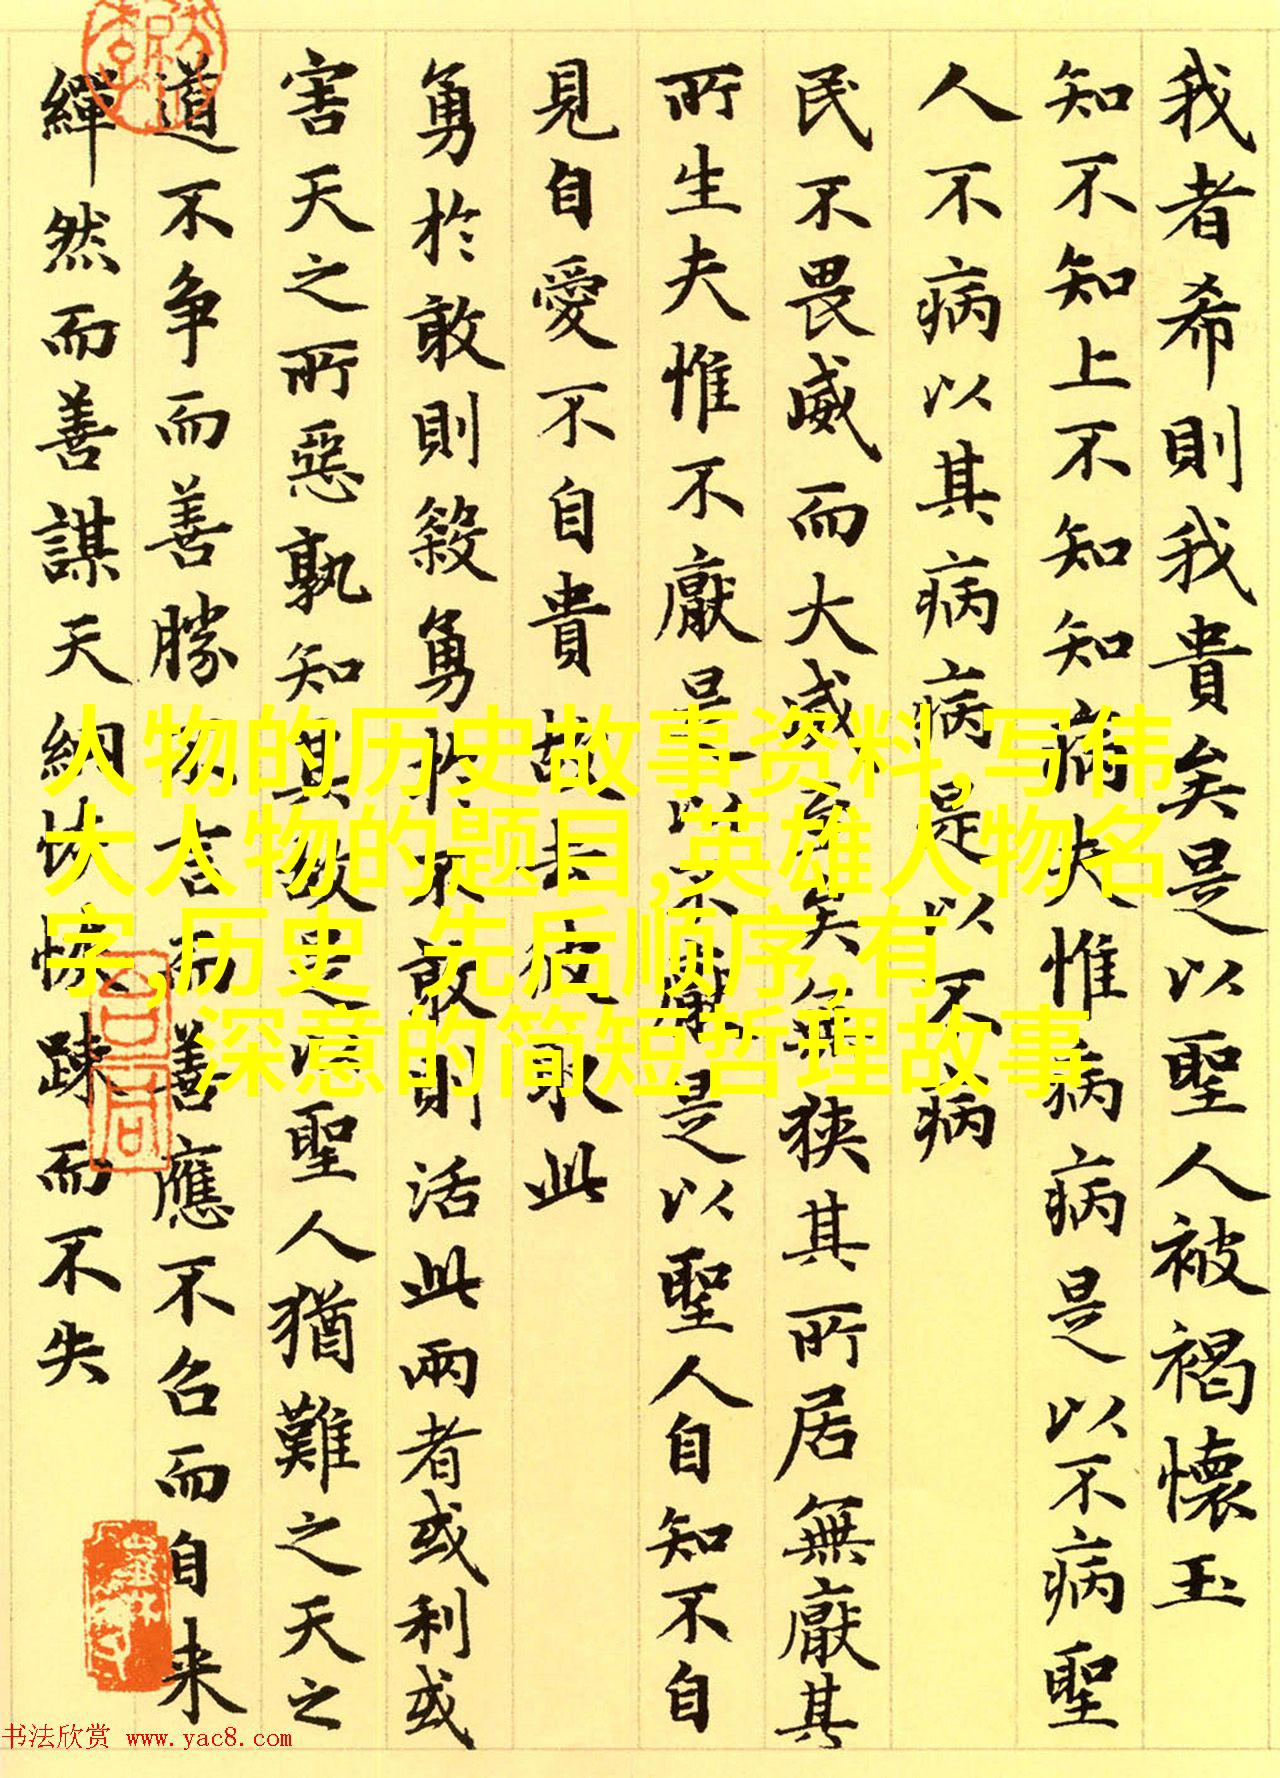 我者希則我貴矣是以聖人被褐懷玉
知不知上不知知病夫惟病病是以不病聖
人不病以其病病是以不病
民不畏威而大威至矣無狹其所居無厭其
所生夫惟不厭是以不厭是以聖人自知不自
見自愛不自貴故去彼取此
勇於敢則殺勇於不敢則活此兩者或利或
害天之所惡孰知其故是以聖人猶難之天之
道不争而善勝不言而善應不召而自来
繟然而善謀天網恢恢踈而不失
人物的历史故事资料,写伟
大人物的题目,英雄人物名
字,历史 先后顺序,有
深意的简短哲理故事
书法欣赏 www.yac8.com